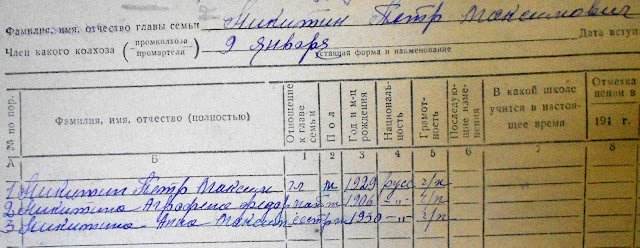 Фамилия, имя, отчество главы семьи Никитин Петр Максимович
Член какого колхоза (промколхоза промартели) 9 января Дата вступ
уставная форма и наименование
№№ по пор. Фамилия, имя, отчество (полностью) Отношение к главе семьи Пол Год и м-ц рождения Националь- ность Грамот- ность Последую- щие изме- нения В какой школе учится в настоя- щее время Отметка нении в 191 г.
Б 1 2 3 4 5 6 7 8
1 Никитин Петр Максим гл м 1929 русс г/н
2 Никитина Аграфена Федор мать 1906 -"- г/н
3 Никитина Анна Максим сестра 1930 -"- г/н